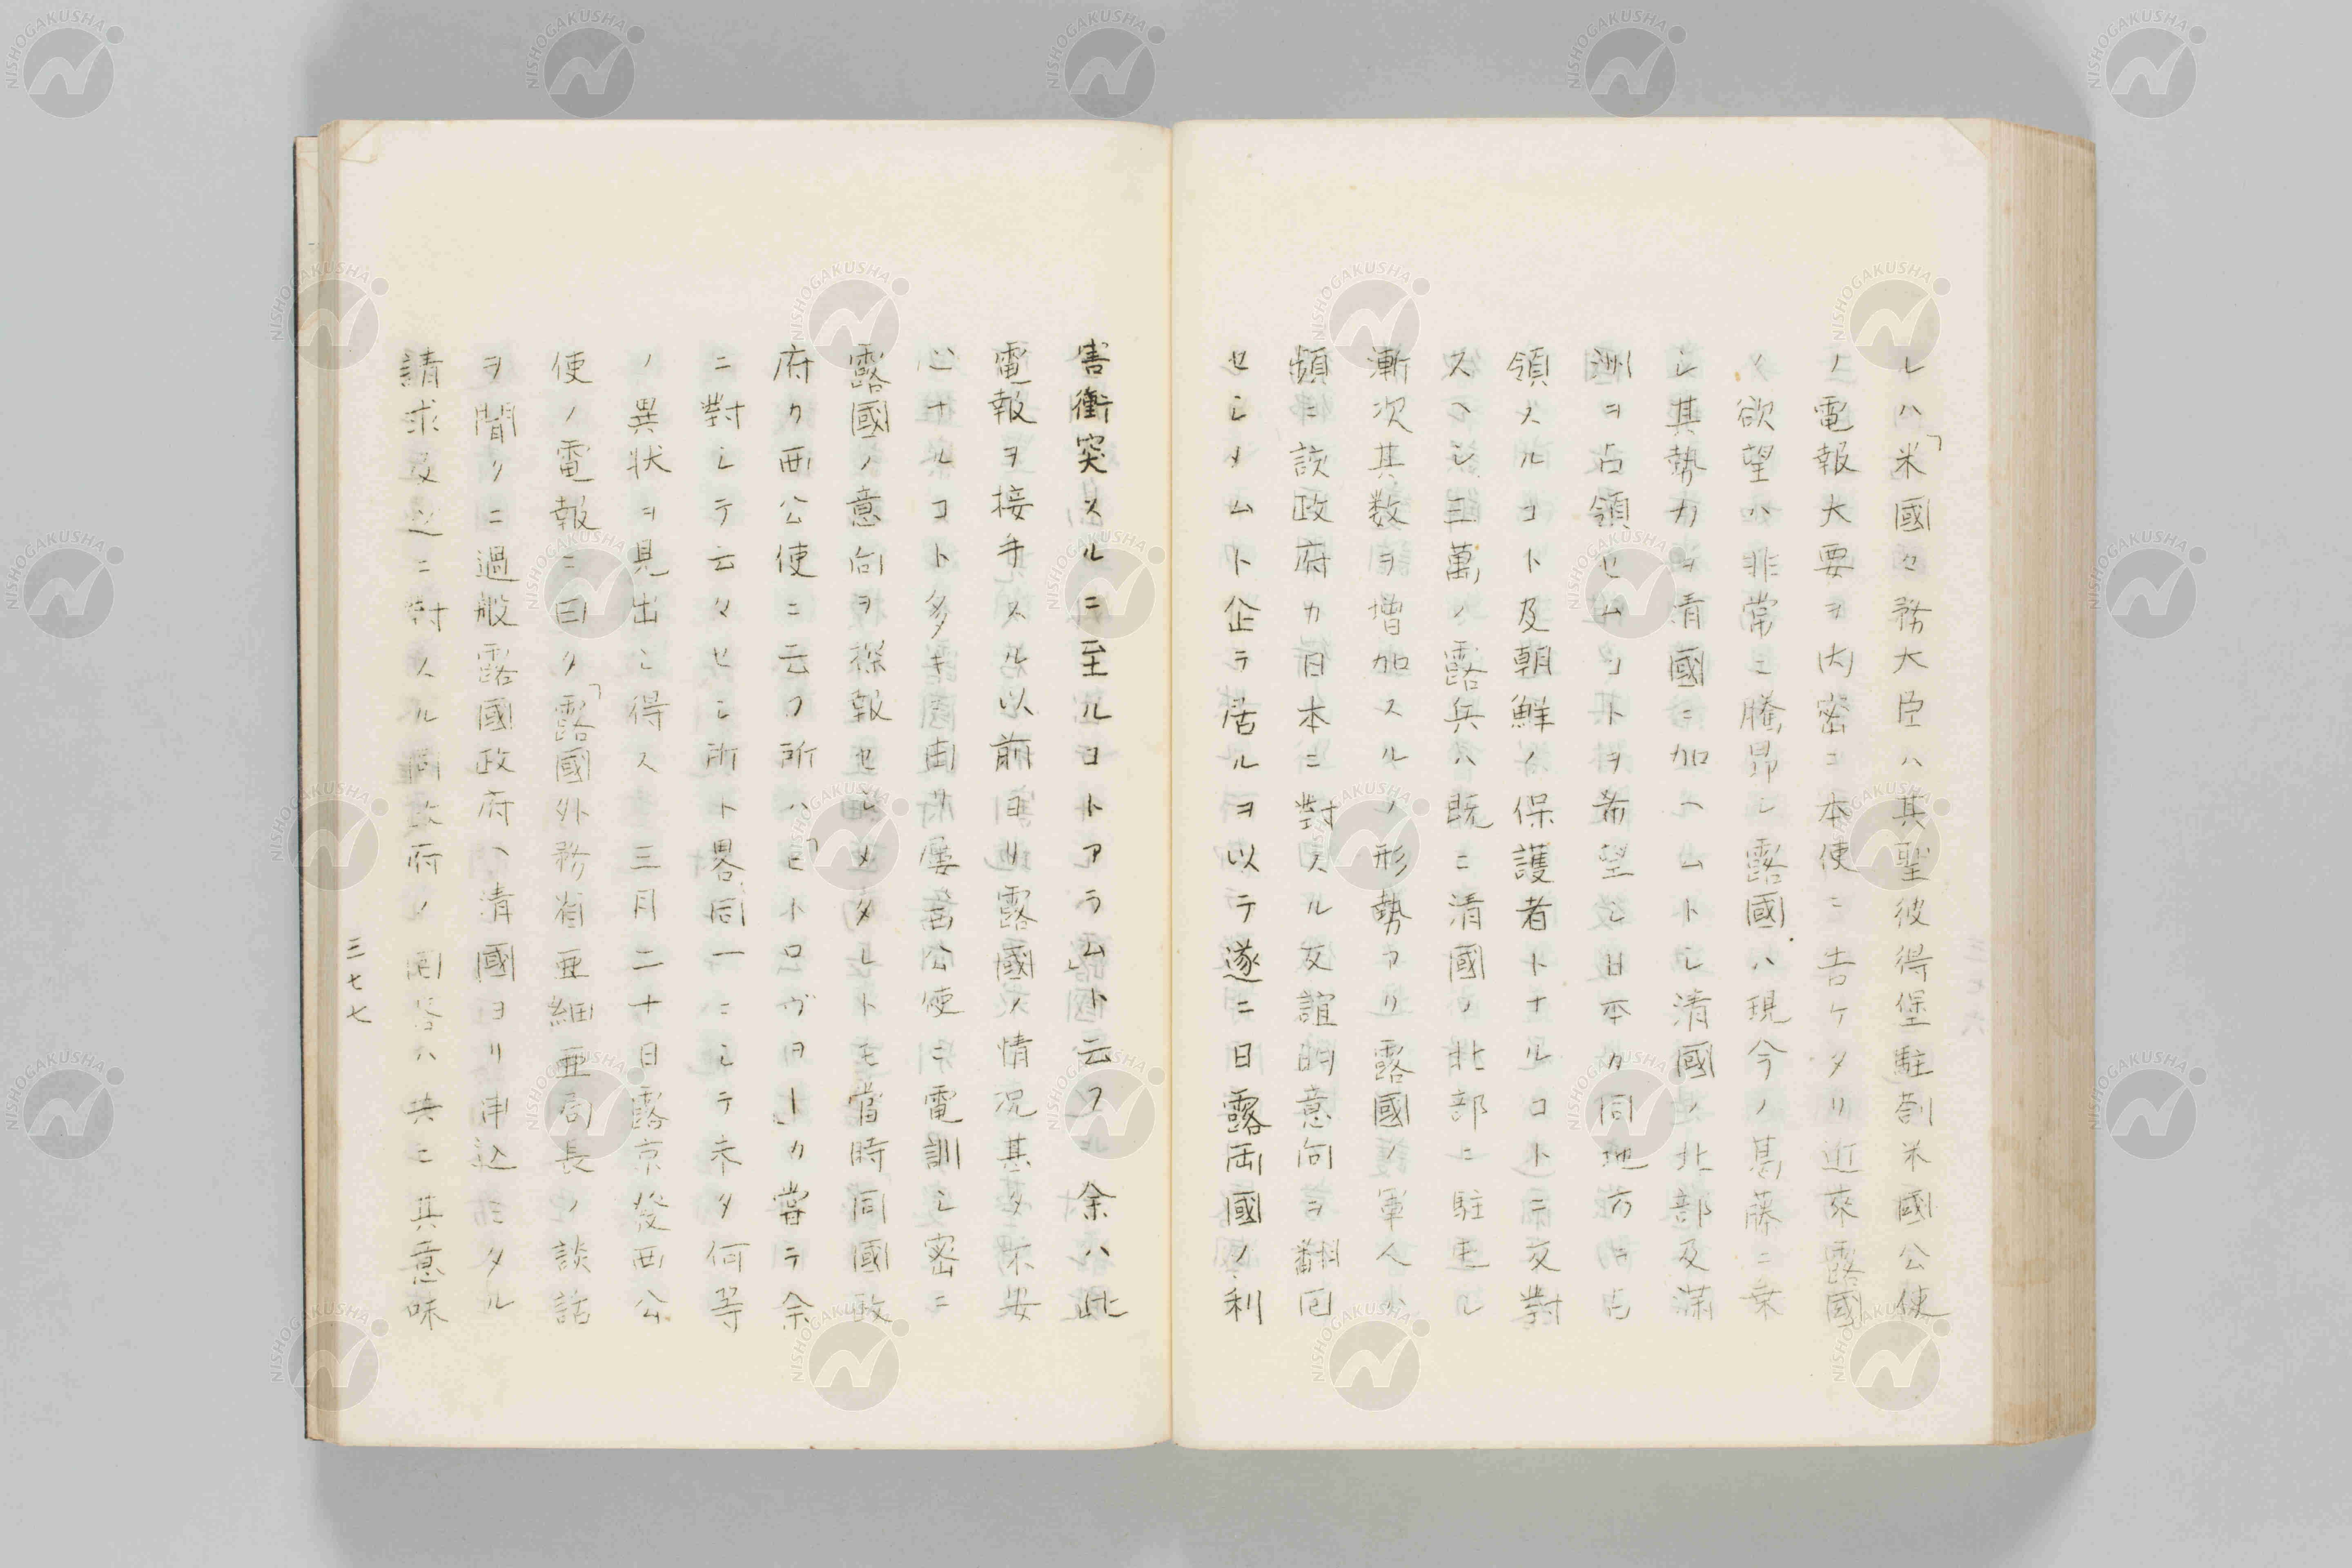 レハ「米國々務大臣ハ其聖彼得堡駐劄米國公使
ノ電報大要ヲ内密ニ本使ニ告ケタリ近來露國
ノ欲望ハ非常ニ騰昂シ露國ハ現今ノ葛藤ニ乘
シ其勢力ヲ清國ニ加ヘムトシ清國ノ北部及滿
洲ヲ占領セムコトヲ希望シ日本カ同地方ニ占
領スルコト及朝鮮ノ保護者トナルコトニ反對
スヘシ三萬ノ露兵ハ既ニ清國ノ北部ニ駐屯シ
漸次其数ヲ增加スルノ形勢アリ露國ノ軍人ハ
頻ニ該政府カ日本ニ對スル友誼的意向ヲ翻回
セシメムト企テ居ルヲ以テ遂ニ日露両國ノ利
害衝突スルニ至ルコトアラム」ト云フニ余ハ此
電報ヲ接手スル以前ヨリ露國ノ情況甚タ不安
心ナルコト多キ由リ屡西公使ニ電訓シ密ニ
露國ノ意向ヲ探報セシメタレトモ當時同國政
府カ西公使ニ云フ所ハ「ヒトロヴオー」カ嘗テ余
ニ對シテ云々セシ所ト畧同一ニシテ未タ何等
ノ異状ヲ見出シ得ス三月二十日露京發西公
使ノ電報ニ曰ク「露國外務省亜細亜局長ノ談話
ヲ聞クニ過般露國政府ヘ清國ヨリ申込ミタル
請求及之ニ對スル同政府ノ回答ハ共ニ其意味
三七七
NISHOGAKUSHA